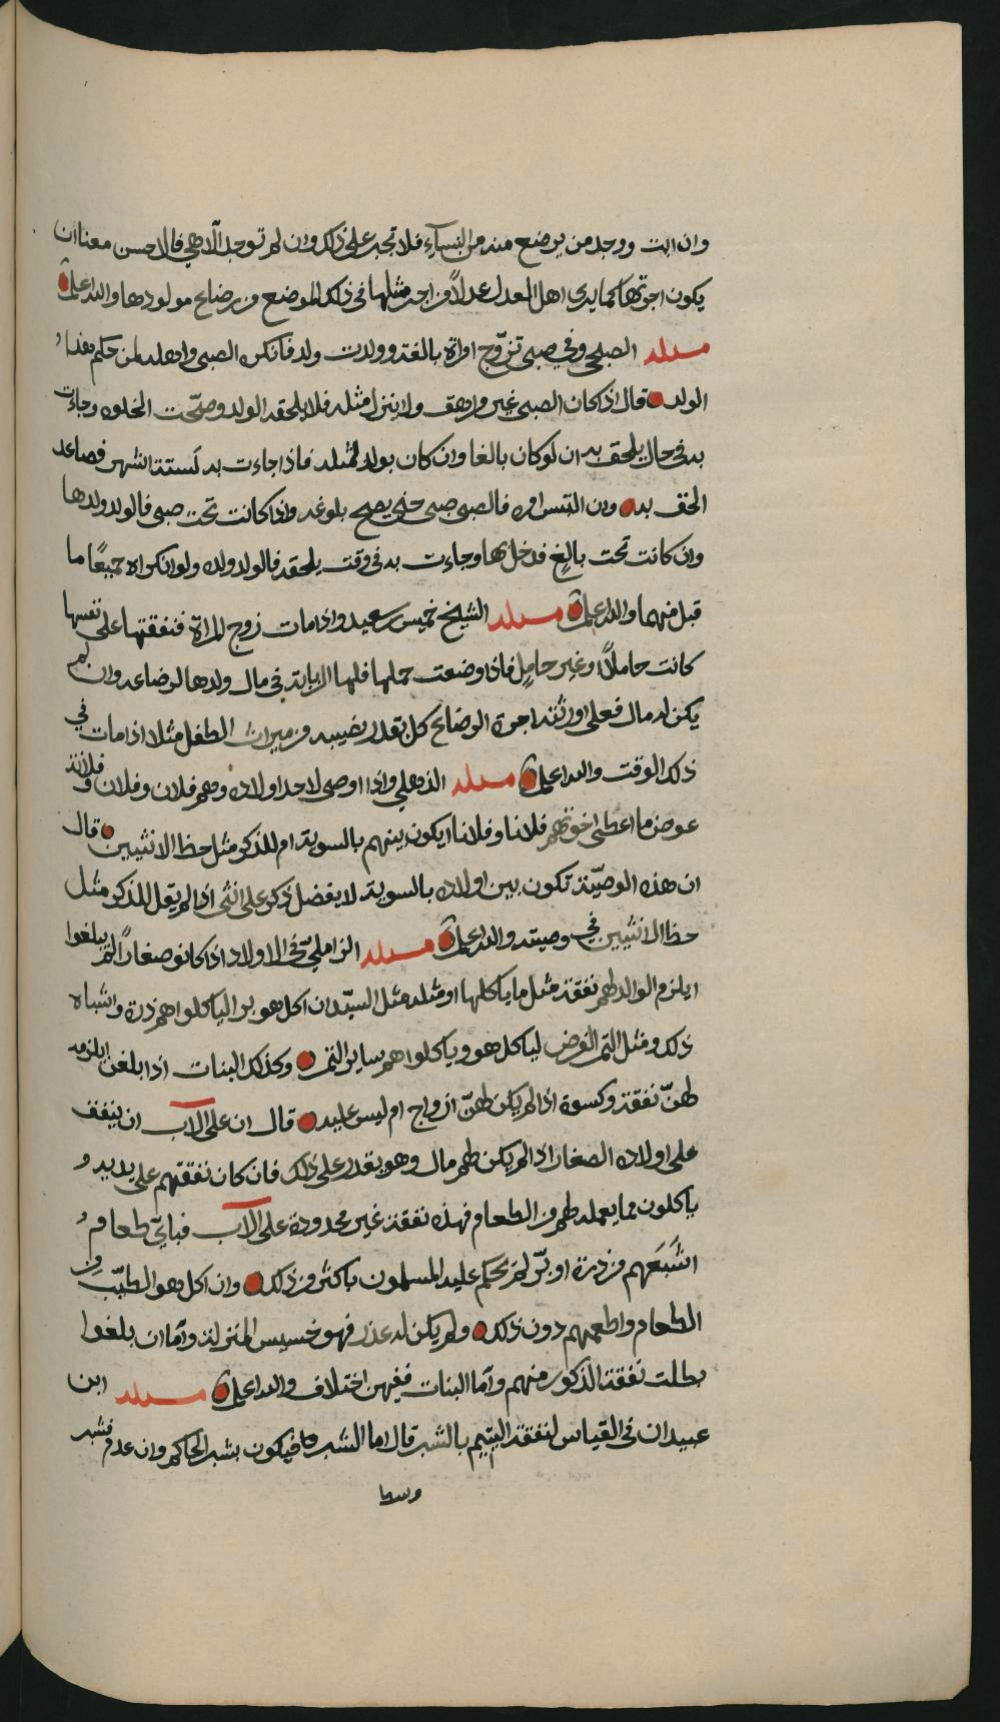 وان ابت ووجد من يرضع منه من النسآء فلا تجبر على ذلك وان لم توجد الّا هي فالاحسن معنا ان
يكون اجرتها كما يرى اهل العدل عدلاً من اجر مثلها في ذلك الموضع من رضاع مولودها والله اعلم
مسئلة الصبحي وفي صبي تزوّج امراة بالغة وولدت ولد فانكره الصبي واهله لمن حكم هذا
الولد قال اذا كان الصبي غير مراهق ولا ينزل مثله فلا يلحقه الولد وصحّت الخلوه وجاءت
به في حال يلحق به ان لو كان بالغا وان كان يولد لمثله فاذا جاءت به لستة اشهر فصاعد
الحق به وان التبس امره فالصبي صبي حتى يصح بلوغه واذا كانت تحت صبي فالولد ولدها
وان كانت تحت بالغ قد دخل بها وجاءت به في وقت يلحقه فالولد ولده ولو انكراه جميعًا ما
قبل منهما والله اعلم مسئلة الشيخ خميس بن سعيد واذا مات زوج المراة فنفقتها على نفسها
كانت حاملًا او غير حامل فاذا وضعت حملها فلها الربابة في مال ولدها لرضاعه وان لم
يكن له مال فعلى اورثته اجرة الرضاع كل بقدر نصيبه من ميراث الطفل مثلا اذا مات في
ذلك الوقت والله اعلم مسئلة الذهلي واذا اوصى لاحد اولاده وهم فلان وفلان وفلانة
عوض ما اعطى اخوتهم فلانا وفلانا ايكون بينهم بالسوية ام للذكر مثل حظ الانثيين قال
ان هذه الوصيّة تكون بين اولاده بالسوية لا يفضل ذكر على انثى اذا لم يقل للذكر مثل
حظ الانثيين في وصيته والله اعلم مسئلة الزاملي في الاولاد اذا كانو صغارًا لم يبلغوا
ايلزم الوالد لهم نفقة مثل ما ياكلها او مثله مثل السيّد ان اكل هو برا لياكلوا هم ذرة واشباه
ذلك ومثل التمر الفرض لياكل هو وياكلوا هم ساير التمر وكذلك البنات اذا بلغن ايلزمه
لهنّ نفقة وكسوة اذا لم يكن لهنّ ازواج ام ليس عليه قال ان على الاب ان ينفق
على اولاده الصغار اذا لم يكن لهم مال وهو يقدر على ذلك فان كان نفقتهم على يديه و
ياكلون مما يعمله لهم من الطعام فهذه نفقة غير محدودة على الاب فبايّ طعام
اشبَعَهم من ذرة او برّ لم يحكم عليه المسلمون باكثر من ذلك وان اكل هو الطيّب من
الطعام واطعمهم دون ذلك ولم يكن له عذر فهو خسيس المنزلة وامّا ان بلغوا
بطلت نفقة الذكور منهم وامّا البنات ففيهن اختلاف والله اعلم مسئلة ابن
عبيدان في القياس لنفقة اليتيم بالشبر قال اما الشبر فيكون بشبر الحاكم وان عدم فشبر
وسط